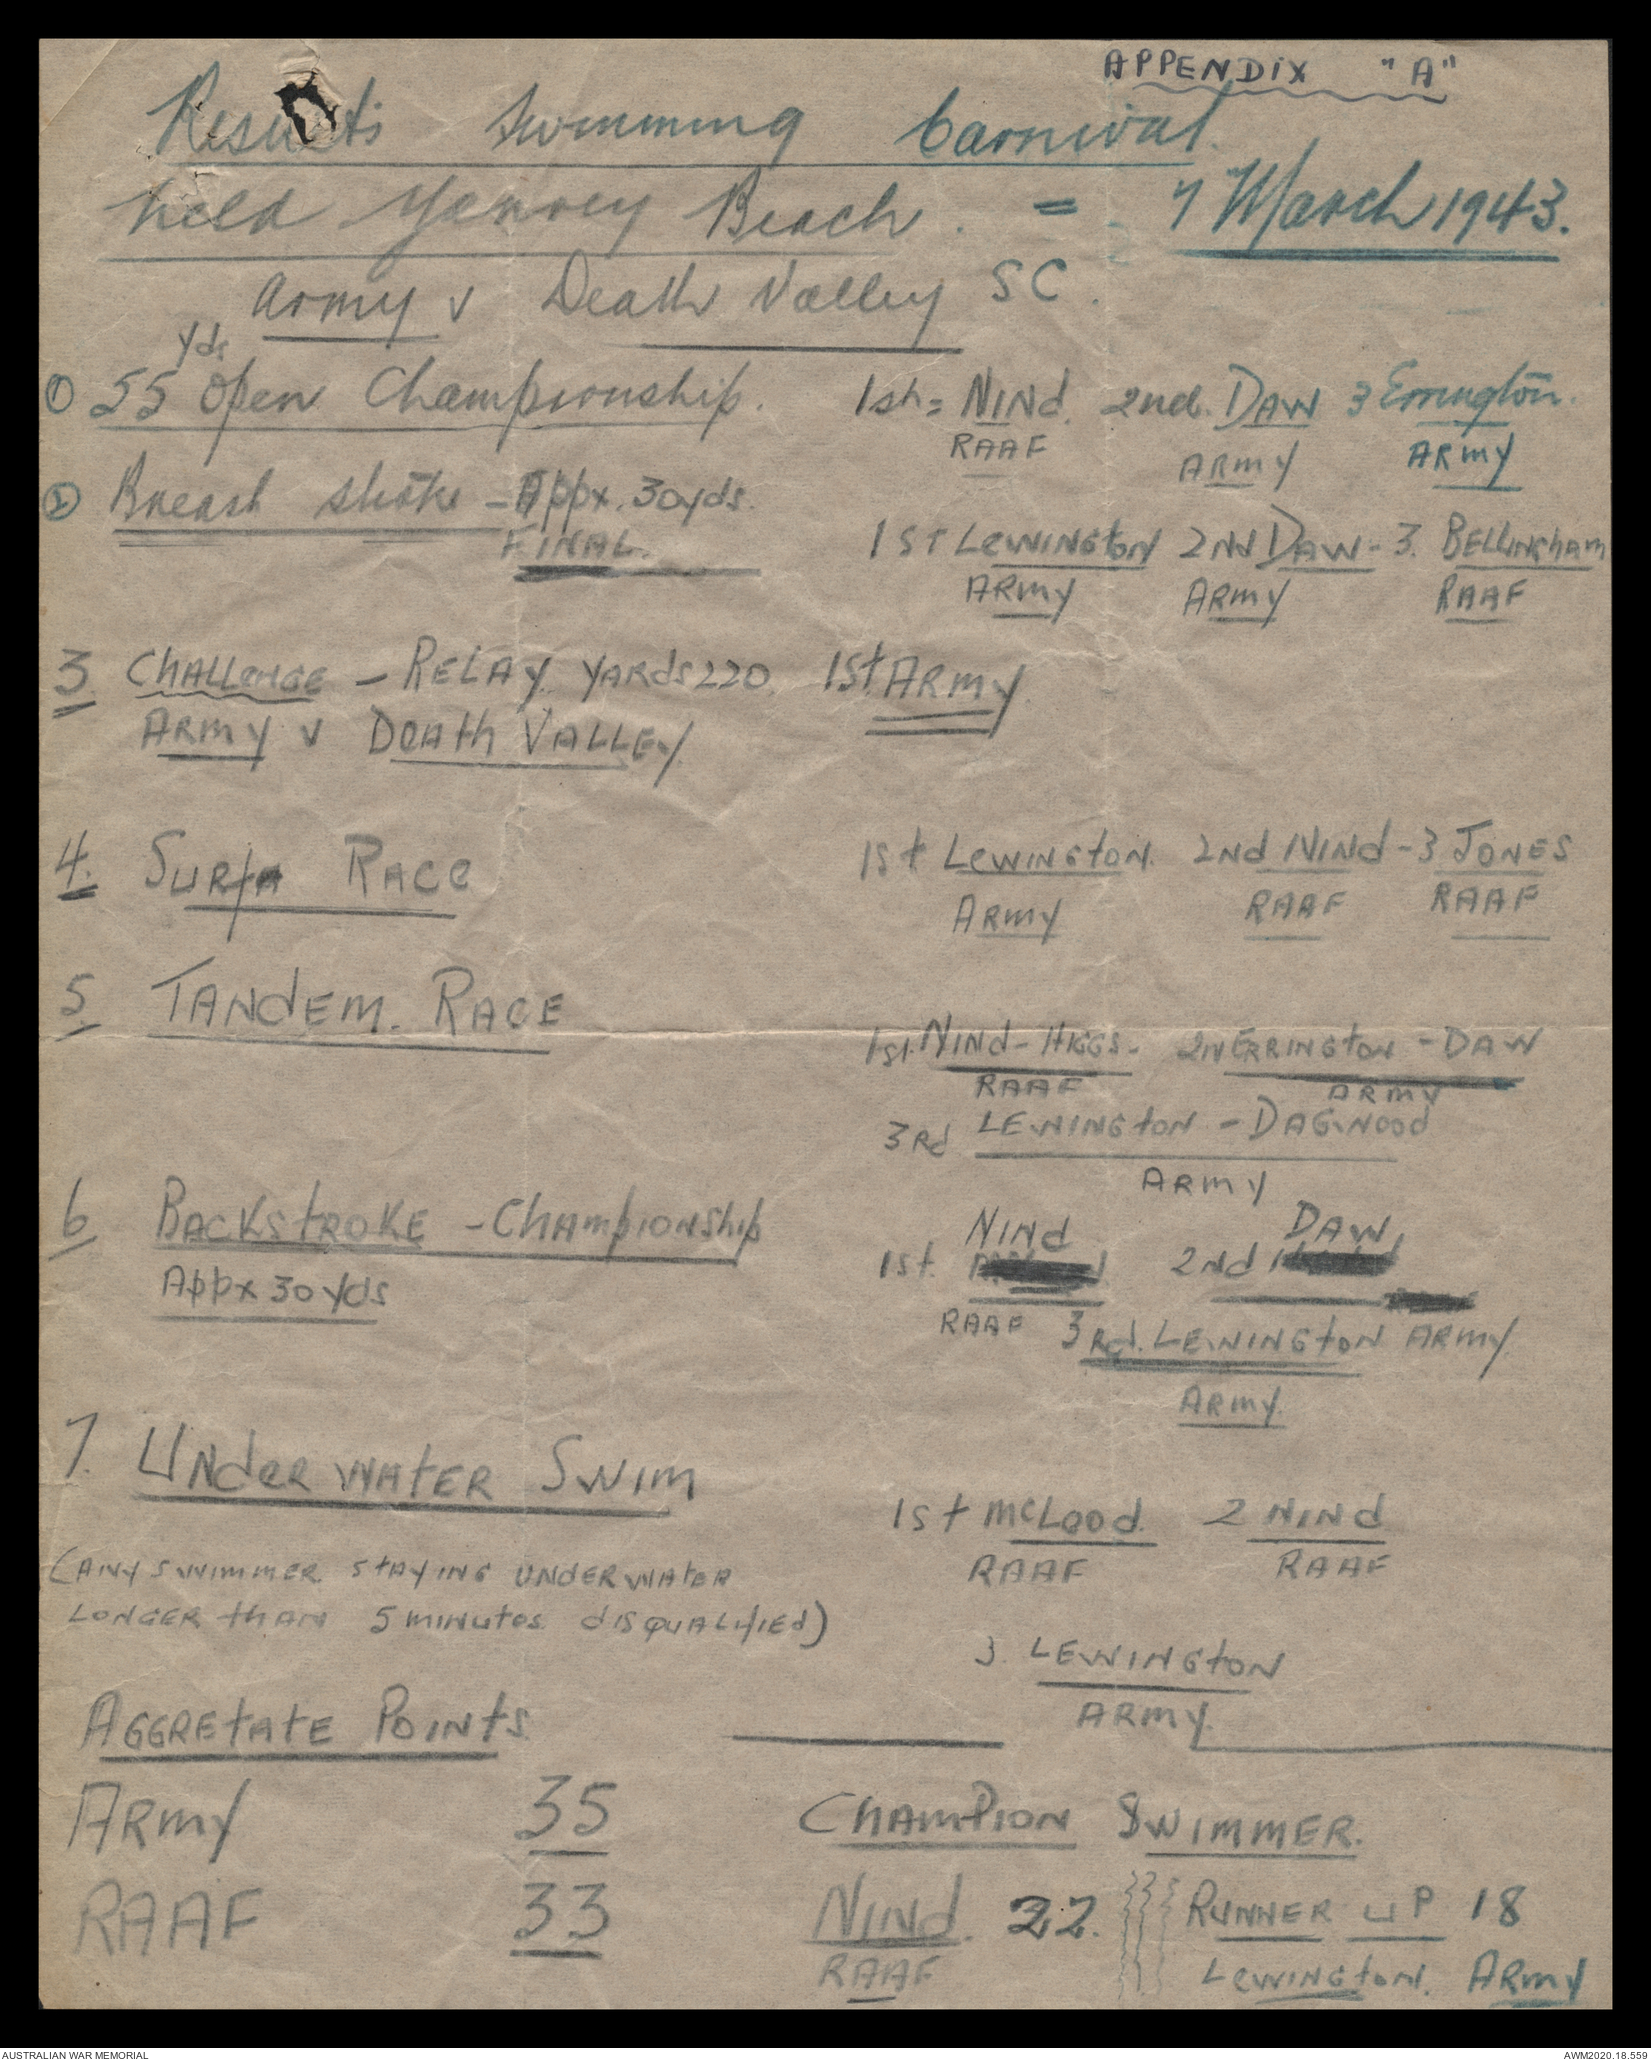 APPENDIX "A"
Results Swimming Carnival.
held Yanrey Beach. = 7 March 1943.
Army v Death Valley SC.
yds
① 55 Open Championship. 1st = NINd. 2nd. DAW 3 Errington.
RAAF ARMY ARMY
② Breast stroke - Appx. 30yds.
FINAL.
1ST LeWINGtoN 2Nd DAW - 3. BELLINGhAM
ARMY ARMY RAAF
3 ChALLeNGE - RELAY YARdS 220 1St ARMY
ARMY v DeAth VALLEY
4. SURfA RACe 1St LeWINGtoN. 2Nd NINd - 3 JONES
ARMY RAAF RAAF
5 TANdEM. RACE
1st. NINd - HIGGS - 2N ERRINGtoN - DAW
RAAF ARMY
3Rd LEWINGtoN - DAGWOOd
ARMY
6 BACKStROKE - ChAMpIONShIp NINd DAW
1st. 2Nd
Appx 30 yds
RAAF 3Rd. LEWINGtoN ARMY
ARMY.
7. UNdeR WAtER SWIM
1st McLeod. 2 NINd
RAAF RAAF
(ANY SWIMMER StAYING UNdER WAtER
LONGER thAN 5 MINutes dISQUALIfIEd)
3. LEWINGtoN
ARMY.
AGGREtAtE POINtS
ARMY 35 ChAMPION SWIMMER.
RAAF 33 NINd. 22. RUNNER UP 18
RAAF LeWINGtoN. ARMY
AUSTRALIAN WAR MEMORIAL AWM2020.18.559